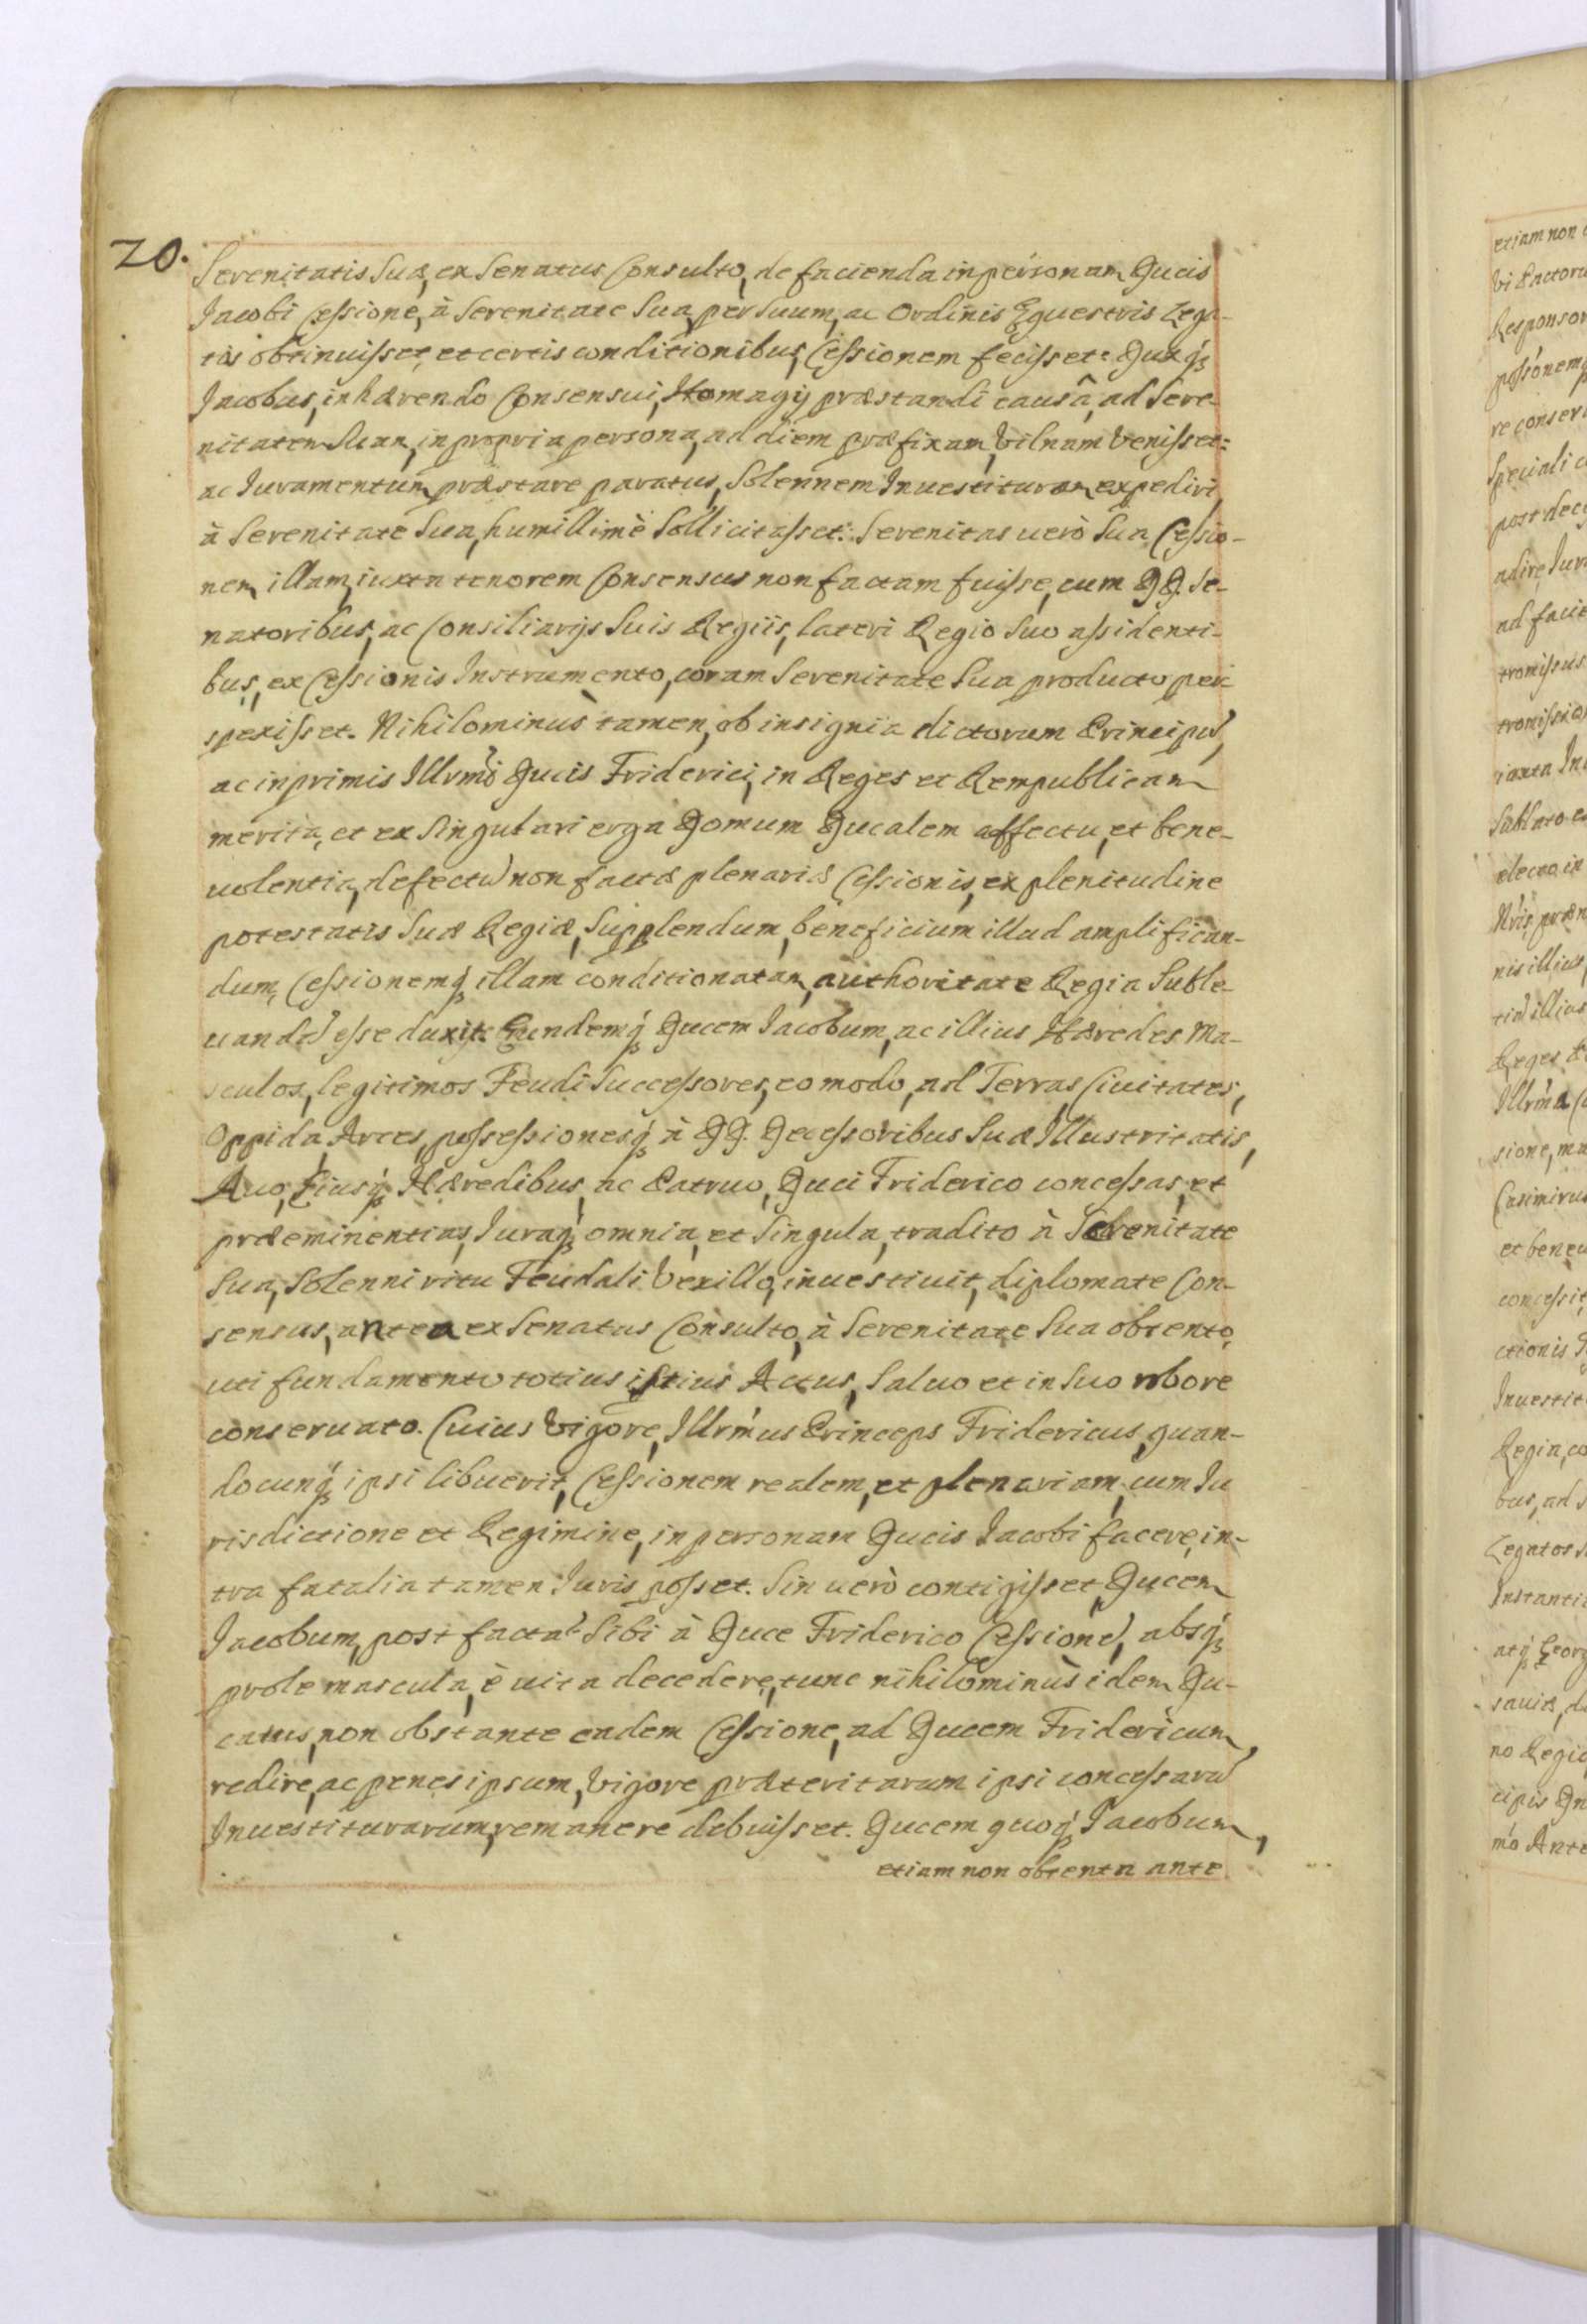 20.
Serenitatis Suæ, ex Senatus Consulto, de facienda in personam Ducis
Jacobi Cessione, à Serenitate Sua, per Suum, ac Ordinis Equestris Lega-
tos obtinuisset, et certis conditionibus, Cessionem fecisset: Dux q́ꝫ
Jacobus, inhærendo Consensui, Homagij præstandi causâ, ad Sere-
nitatem Suam, in propria persona, ad diem præfixam, Vilnam Venisset:
ac Juramentum præstare paratus, Solennem Inuestituram expediri
à Serenitate Sua, humillimè Sollicitasset: Serenitas uerò Sua Cessio-
nem illam, iuxta tenorem Consensus non factam fuisse, cum DD. Se-
natoribus, ac Consiliarijs Suis Regiis, lateri Regio Suo assidenti-
bus, ex Cessionis Instrumento, coram Serenitate Sua producto per-
spexisset. Nihilominùs tamen, ob insignia dictorum Principũ,
ac inprimis Illrmi Ducis Friderici, in Reges et Rempublicam
merita, et ex Singulari erga Domum Ducalem affectu, et bene-
uolentia, defectũ non factæ plenariæ Cessionis, ex plenitudine
potestatis Suæ Regiæ, Supplendum, beneficium illud amplifican-
dum, Cessionemq́ꝫ illam conditionatam, authoritate Regia Suble-
uandã esse duxit: Eundemq́ꝫ Ducem Jacobum, ac illius Hæredes Ma-
sculos, legitimos Feudi Successores, eo modo, ad Terras, Ciuitates,
Oppida, Arces, possessionesq́ꝫ à DD. Decessoribus Suæ Illustritatis,
Auo, Eiusq́ꝫ Hæredibus, ac Patruo, Duci Friderico concessas, et
præeminentias, Juraq́ꝫ omnia, et Singula, tradito à Serenitate
Sua, Solenni ritu Feudali Vexillo, inuestiuit, diplomate Con-
sensus, antea ex Senatus Consulto, à Serenitate Sua obtento,
uti fundamento totius istius Actus, Saluo et in Suo robore
conseruato. Cuius Vigore, Illrmus Princeps Fridericus, quan-
documq́ꝫ ipsi libuerit, Cessionem realem, et plenariam, cum Ju
risdictione et Regimine, in personam Ducis Jacobi facere, in-
tra fatalia tamen Juris posset. Sin uerò contigisset, Ducem
Jacobum, post factã Sibi à Duce Friderico Cessionẽ, absq́ꝫ
prole mascula, è uita decedere, tunc nihilominùs idem Du-
catus, non obstante eadem Cessione, ad Ducem Fridericum,
redire, ac penes ipsum, Vigore præteritarum ipsi concessarũ
Inuestiturarum, remanere debuisset. Ducem quoq́ꝫ Jacobum,
etiam non obtenta ante
etiam non
Responsor
re conser
Speciali
post dec
ad facie
tromissus
iuxta In
nis illius
sione, ma
Casimirus
et beneu
concessit
ctionis
Inuestit
Regia, co
bus, ad
Legatos
Instanti
no Regio